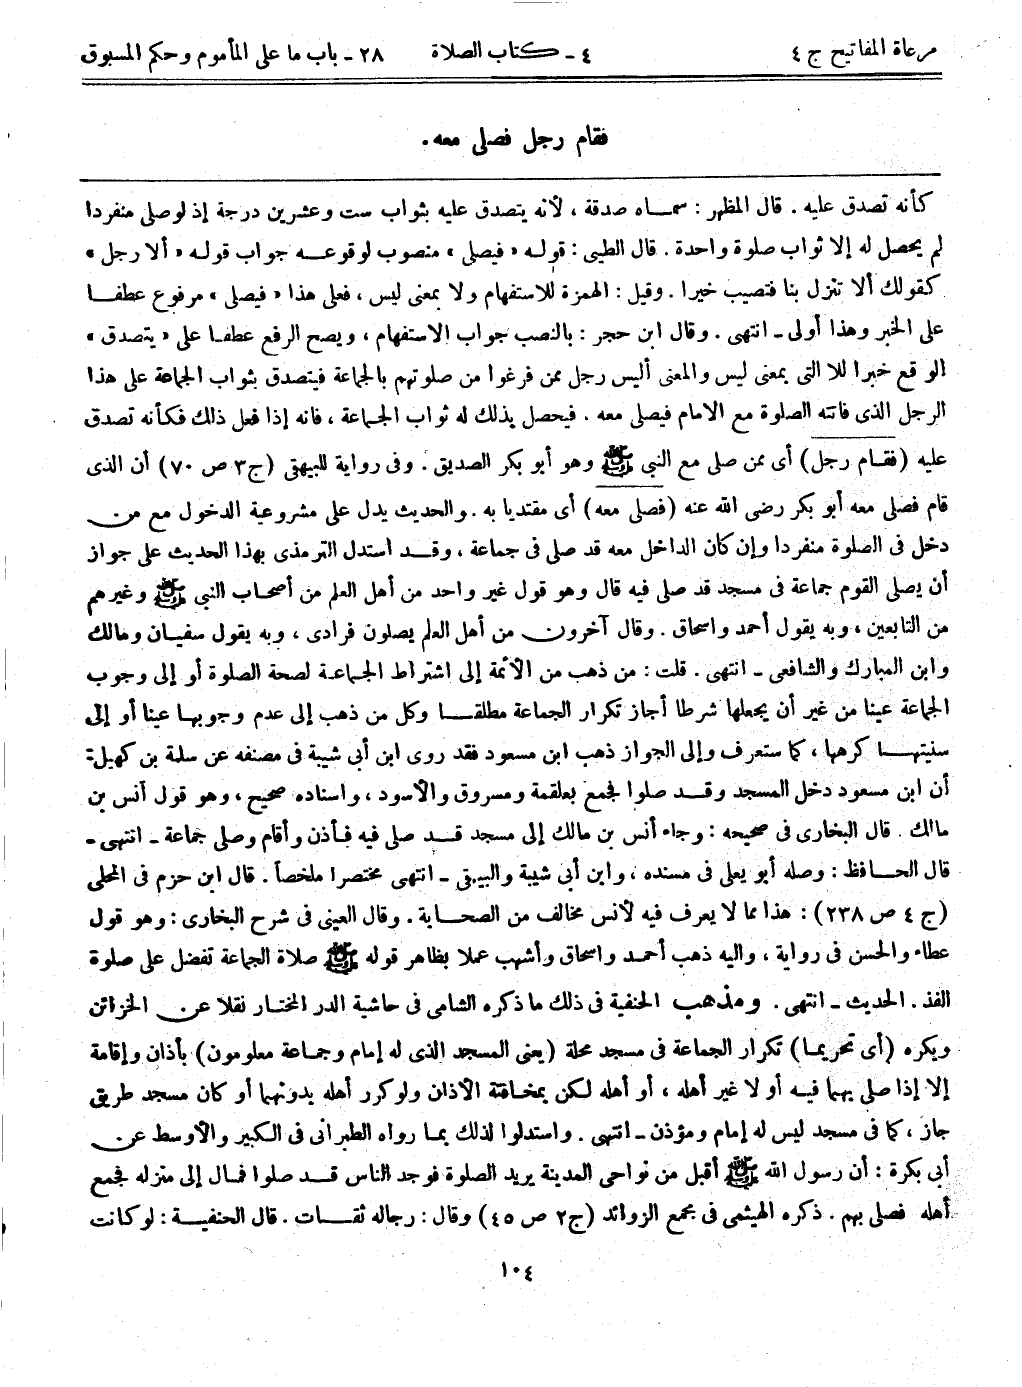 مرعاة المفاتيح ج ٤ ٤ - كتاب الصلاة ٢٨ - باب ما على المأموم وحكم المسبوق
فقام رجل فصلى معه.
كأنه تصدق عليه. قال المظهر: سماه صدقة، لأنه يتصدق عليه بثواب ست وعشرين درجة إذ لو صلى منفردا
لم يحصل له إلا ثواب صلوة واحدة. قال الطيى: قوله «فيصلى» منصوب لوقوعه جواب قوله «ألا رجل»
كقولك ألا تنزل بنا فتصيب خيرا. وقيل: الهمزة للاستفهام ولا بمعنى ليس، فعلى هذا «فيصلى» مرفوع عطفا
على الخبر وهذا أولى - انتهى. وقال ابن حجر: بالنصب جواب الاستفهام، ويصح الرفع عطفا على «يتصدق»
الوقع خبرا للا التى بمعنى ليس والمعنى أليس رجل ممن فرغوا من صلوتهم بالجماعة فيتصدق بثواب الجماعة على هذا
الرجل الذى فاتته الصلوة مع الامام فيصلى معه. فيحصل بذلك له ثواب الجماعة، فانه إذا فعل ذلك فكأنه تصدق
عليه (فقام رجل) أى ممن صلى مع النبى ﷺ وهو أبو بكر الصديق. وفى رواية للبيهقى (ج٣ ص ٧٠) أن الذى
قام فصلى معه أبو بكر رضى الله عنه (فصلى معه) أى مقتديا به. والحديث يدل على مشروعية الدخول مع من
دخل فى الصلوة منفردا وإن كان الداخل معه قد صلى فى جماعة، وقد استدل الترمذى بهذا الحديث على جواز
أن يصلى القوم جماعة فى مسجد قد صلى فيه قال وهو قول غير واحد من أهل العلم من أصحاب النبى ﷺ وغيرهم
من التابعين، وبه يقول أحمد واسحاق. وقال آخرون من أهل العلم يصلون فرادى، وبه يقول سفيان ومالك
وابن المبارك والشافعى - انتهى. قلت: من ذهب من الأئمة إلى اشتراط الجماعة لصحة الصلوة أو إلى وجوب
الجماعة عينا من غير أن يجعلها شرطا أجاز تكرار الجماعة مطلقا وكل من ذهب إلى عدم وجوبها عينا أو إلى
سنيتها كرهها، كما ستعرف وإلى الجواز ذهب ابن مسعود فقد روى ابن أبى شيبة فى مصنفه عن سلمة بن كهيل:
أن ابن مسعود دخل المسجد وقد صلوا فجمع بعلقمة ومسروق والأسود، واسناده صحيح، وهو قول أنس بن
مالك. قال البخارى فى صحيحه: وجاء أنس بن مالك إلى مسجد قد صلى فيه فأذن وأقام وصلى جماعة - انتهى -
قال الحافظ: وصله أبو يعلى فى مسنده، وابن أبى شيبة والبيهقى - انتهى مختصرا ملخصاً. قال ابن حزم فى المحلى
(ج ٤ ص ٢٣٨): هذا مما لا يعرف فيه لأنس مخالف من الصحابة. وقال العينى فى شرح البخارى: وهو قول
عطاء والحسن فى رواية، واليه ذهب أحمد واسحاق وأشهب عملا بظاهر قوله ﷺ صلاة الجماعة تفضل على صلوة
الفذ. الحديث - انتهى. ومذهب الحنفية فى ذلك ما ذكره الشامى فى حاشية الدر المختار نقلا عن الخزائن
ويكره (أى تحريما) تكرار الجماعة فى مسجد محلة (يعنى المسجد الذى له إمام وجماعة معلومون) بأذان وإقامة
إلا إذا صلى بهما فيه أو لا غير أهله، أو أهله لكن بمخافتة الأذان ولو كرر أهله بدونهما أو كان مسجد طريق
جاز، كما فى مسجد ليس له إمام ومؤذن - انتهى. واستدلوا لذلك بما رواه الطبرانى فى الكبير والأوسط عن
أبى بكرة: أن رسول الله ﷺ أقبل من نواحى المدينة يريد الصلوة فوجد الناس قد صلوا فمال إلى منزله فجمع
أهله فصلى بهم. ذكره الهيثمى فى مجمع الزوائد (ج٢ ص ٤٥) وقال: رجاله ثقات. قال الحنفية: لو كانت
١٠٤